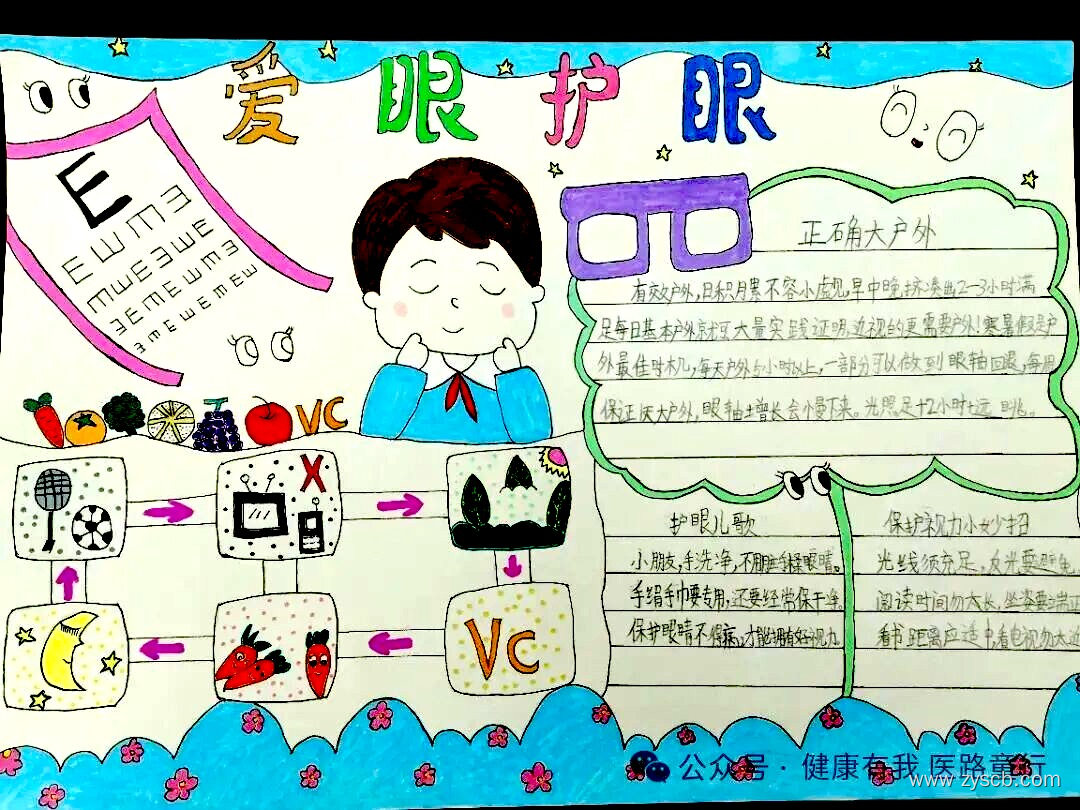 爱眼护眼
E
E E E E
正确大户外
有效户外,日积月累不容小虚见,早中晚挤凑出2-3小时满
足每日基本户外就可大量实践证明,近视的更需要户外!寒暑假是户
外最佳时机,每天户外5小时以上,一部分可以做到眼轴回退,每周
保证1次大户外,眼轴增长会慢下来。光照足+2小时+远眺。
VC
X
VC
护眼儿歌
小朋友,手洗净,不用脏手揉眼睛。
手绢手巾要专用,还要经常保干净。
保护眼睛不得病,才能拥有好视力
保护视力小妙招
光线须充足,反光要避免
阅读时间勿太长,坐姿要端正
看书距离应适中,看电视勿太近
公众号·健康有我 医路童行
www.zyscb.com